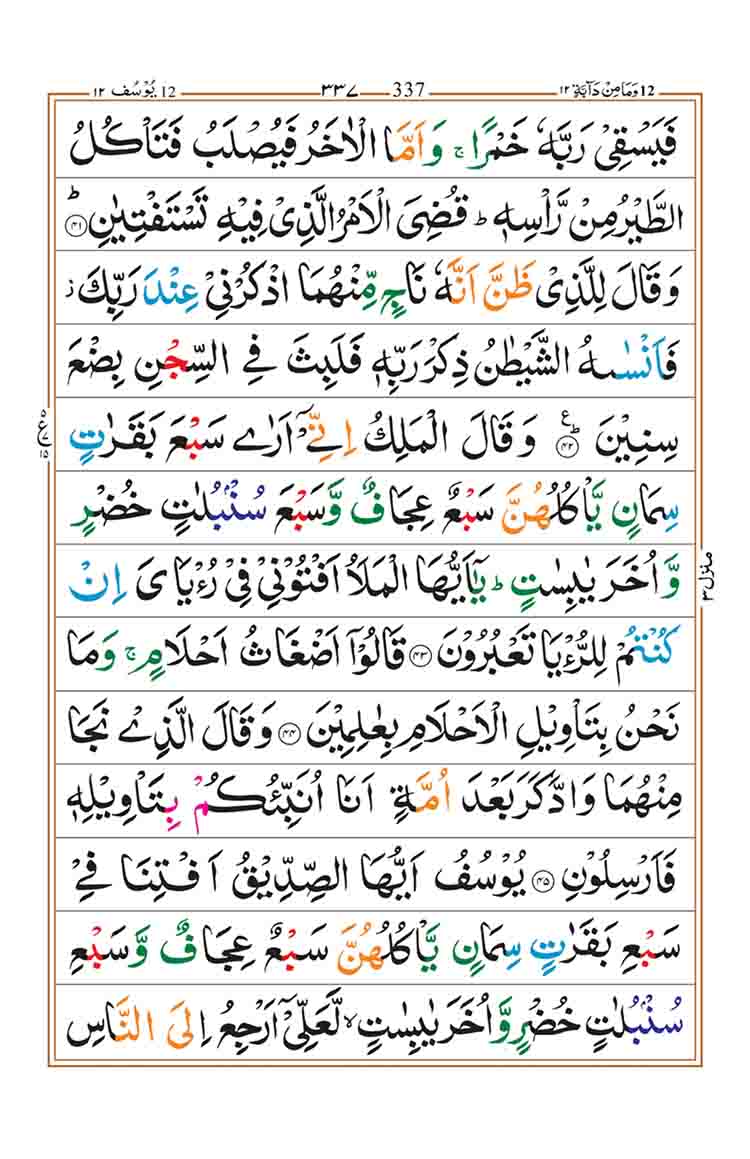 12 وَمَا مِنْ دَآبَّةٍ ١٢ 337 ٣٣٧ 12 يُوْسُف ١٢
فَيَسْقِىْ رَبَّهٗ خَمْرًا ۚ وَاَمَّا الْاٰخَرُ فَيُصْلَبُ فَتَاْكُلُ
الطَّيْرُ مِنْ رَّاْسِهٖ ؕ قُضِىَ الْاَمْرُ الَّذِىْ فِيْهِ تَسْتَفْتِيٰنِ ؕ‏ ﴿۴۱﴾
وَقَالَ لِلَّذِىْ ظَنَّ اَنَّهٗ نَاجٍ مِّنْهُمَا اذْكُرْنِىْ عِنْدَ رَبِّكَ ز
فَاَنْسٰٮهُ الشَّيْطٰنُ ذِكْرَ رَبِّهٖ فَلَبِثَ فِى السِّجْنِ بِضْعَ
سِنِيْنَ ؕ ﴿۴۲﴾ ع وَقَالَ الْمَلِكُ اِنِّىْۤ اَرٰى سَبْعَ بَقَرٰتٍ
ع ٥ ٧ ١٥
سِمَانٍ يَّاْكُلُهُنَّ سَبْعٌ عِجَافٌ وَّسَبْعَ سُنْۢبُلٰتٍ خُضْرٍ
وَّاُخَرَ يٰبِسٰتٍ ؕ يٰۤاَيُّهَا الْمَلَاُ اَفْتُوْنِىْ فِىْ رُءْيَاىَ اِنْ
منزل ٣
كُنْتُمْ لِلرُّءْيَا تَعْبُرُوْنَ ﴿۴۳﴾ قَالُوْۤا اَضْغَاثُ اَحْلَامٍ ۚ وَمَا
نَحْنُ بِتَاْوِيْلِ الْاَحْلَامِ بِعٰلِمِيْنَ ﴿۴۴﴾ وَقَالَ الَّذِىْ نَجَا
مِنْهُمَا وَادَّكَرَ بَعْدَ اُمَّةٍ اَنَا اُنَبِّئُكُمْ بِتَاْوِيْلِهٖ
فَاَرْسِلُوْنِ ﴿۴۵﴾ يُوْسُفُ اَيُّهَا الصِّدِّيْقُ اَفْتِنَا فِىْ
سَبْعِ بَقَرٰتٍ سِمَانٍ يَّاْكُلُهُنَّ سَبْعٌ عِجَافٌ وَّسَبْعِ
سُنْۢبُلٰتٍ خُضْرٍ وَّاُخَرَ يٰبِسٰتٍ ۙ لَّعَلِّىْۤ اَرْجِعُ اِلَى النَّاسِ